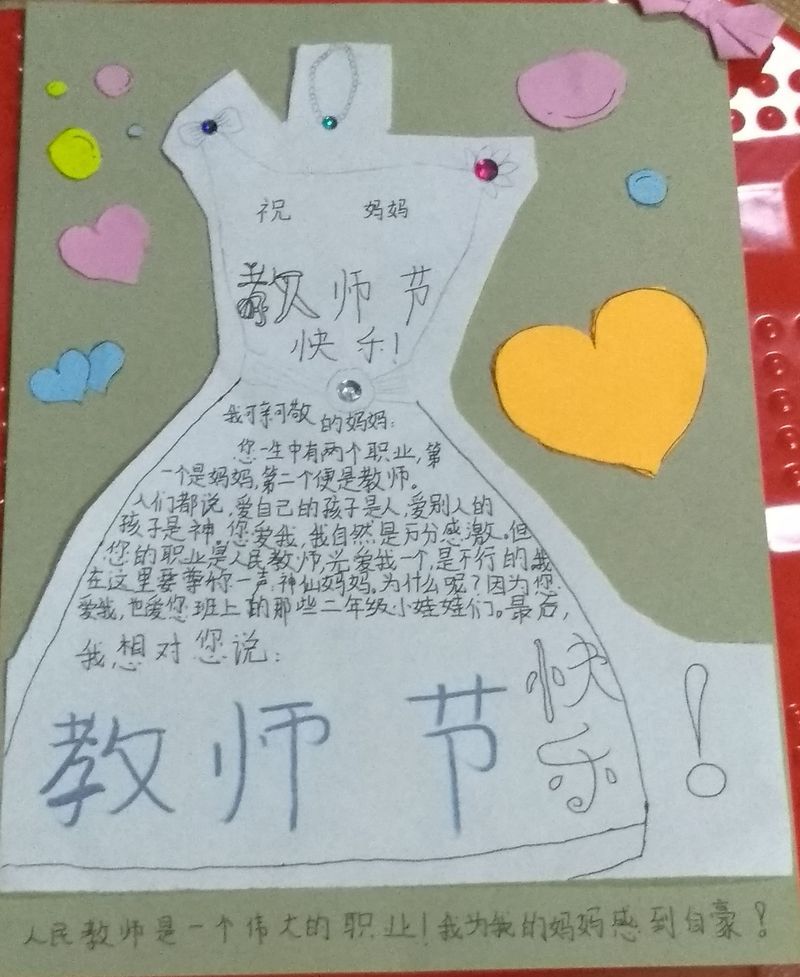 祝 妈妈
教师节
快乐!
我可亲可敬的妈妈:
您一生中有两个职业,第
一个是妈妈,第二个便是教师。
人们都说,爱自己的孩子是人,爱别人的
孩子是神。您爱我,我自然是万分感激。但
您的职业是人民教师,光爱我一个,是不行的,我
在这里要尊称一声:神仙妈妈。为什么呢?因为您
爱我,也爱您班上的那些二年级小娃娃们。最后,
我想对您说:
教师节快乐!
人民教师是一个伟大的职业!我为我的妈妈感到自豪!